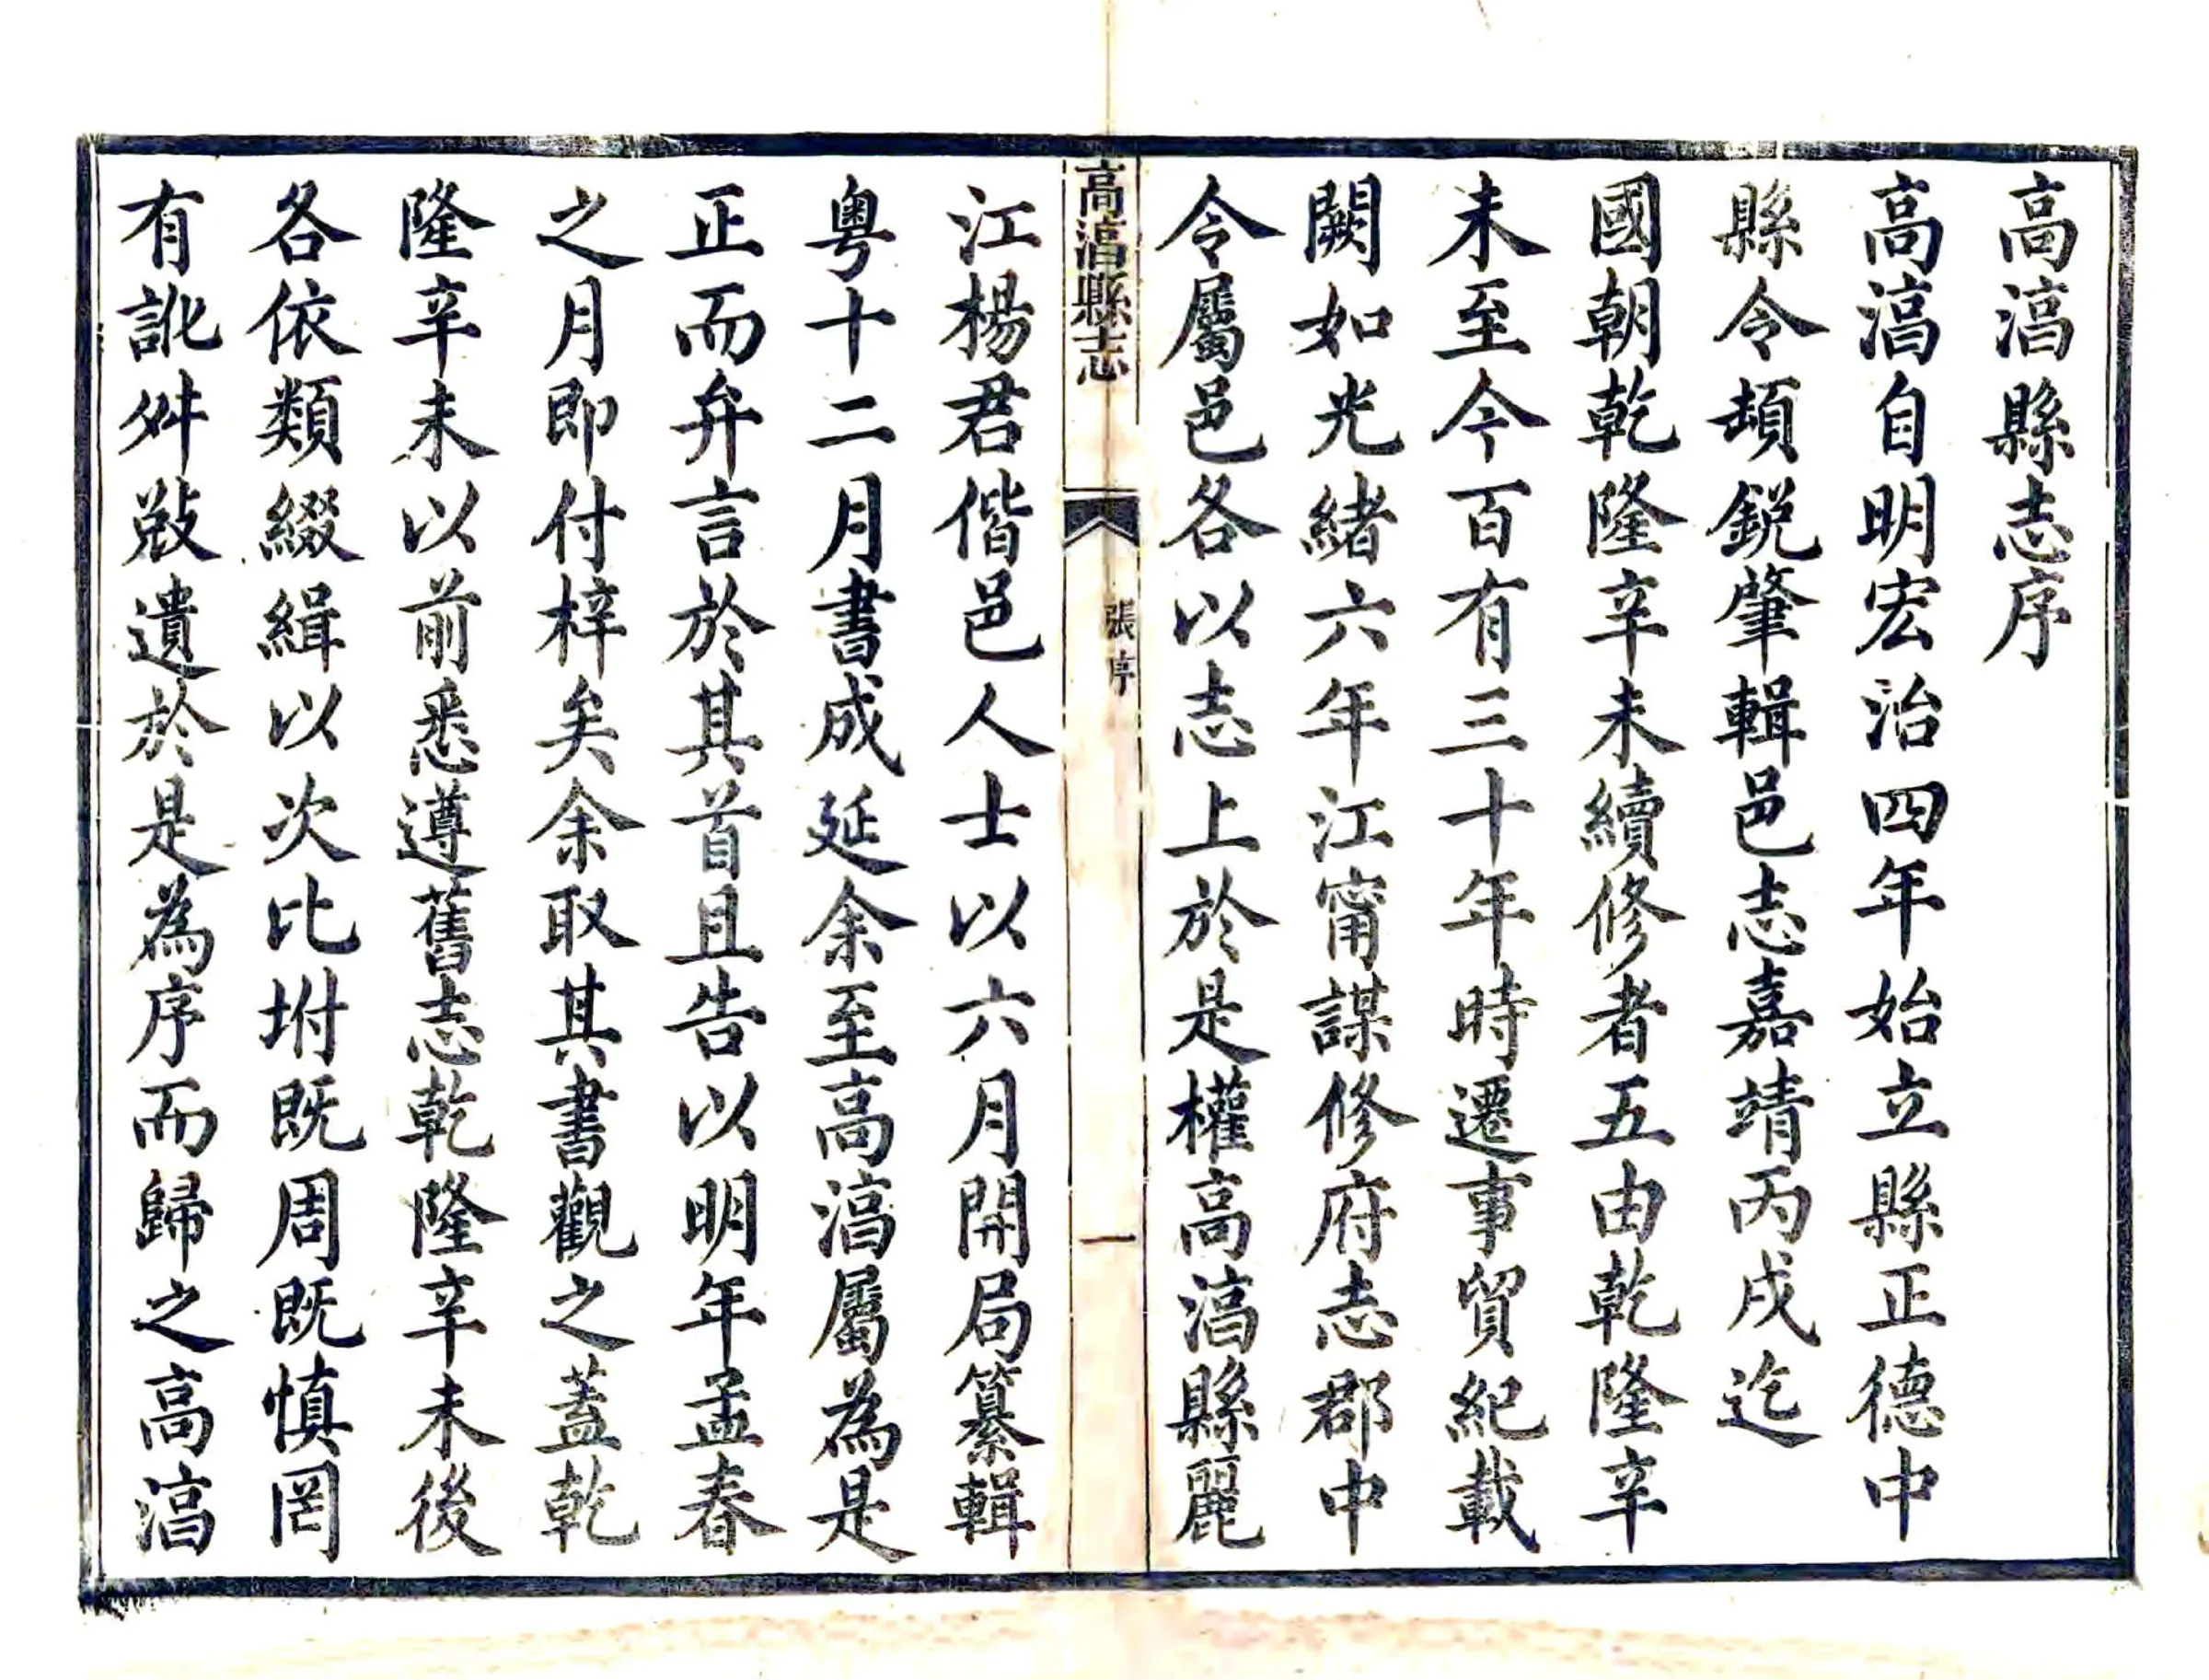 高湻縣志序
高湻自明宏治四年始立縣正德中
縣令頓銳肇輯邑志嘉靖丙戌迄
國朝乾隆辛未續修者五由乾隆辛
未至今百有三十年時遷事貿紀載
闕如光緒六年江甯謀修府志郡中
令屬邑各以志上於是權高湻縣麗
高湻縣志
張序
一
江楊君偕邑人士以六月開局纂輯
粵十二月書成延余至高湻屬為是
正而弁言於其首且告以明年孟春
之月即付梓矣余取其書觀之蓋乾
隆辛未以前悉遵舊志乾隆辛未後
各依類綴緝以次比坿既周既慎罔
有訛舛敚遺於是為序而歸之高湻